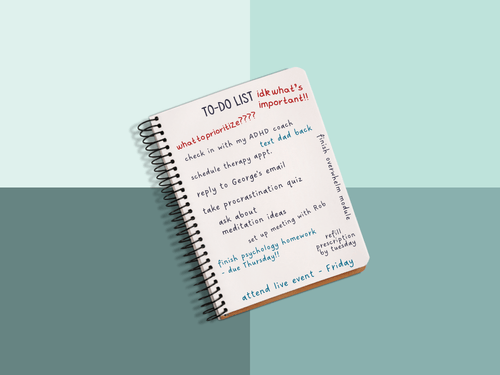 TO-DO LIST
idk what's
important!!
what to prioritize????
check in with my ADHD coach
text dad back
schedule therapy appt.
reply to George's email
take procrastination quiz
finish overwhelm module
ask about
meditation ideas
set up meeting with Rob
finish psychology homework
- due Thursday!!
refill
prescription
by tuesday
attend live event - Friday